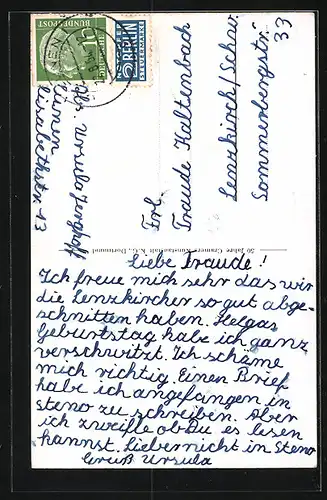 Abs. Ursula Jerghoff
Hamm
Elisabethstr. 13
DEUTSCHE
BUNDESPOST
NOTOPFER
2 BERLIN
STEUERMARKE
Frl.
Traude Kaltenbach
Lenzkirch/Schw.
Sommerbergstr.
33
50 Jahre Cramers Kunstanstalt K.G., Dortmund
Liebe Traude!
Ich freue mich sehr das wir
die Lenzkircher so gut abge-
schnitten haben. Helgas
Geburtstag habe ich ganz
verschwitzt. Ich schäme
mich richtig. Einen Brief
habe ich angefangen in
steno zu schreiben. Aber
ich zweifle ob Du es lesen
kannst. Lieber nicht in Steno
Gruß Ursula